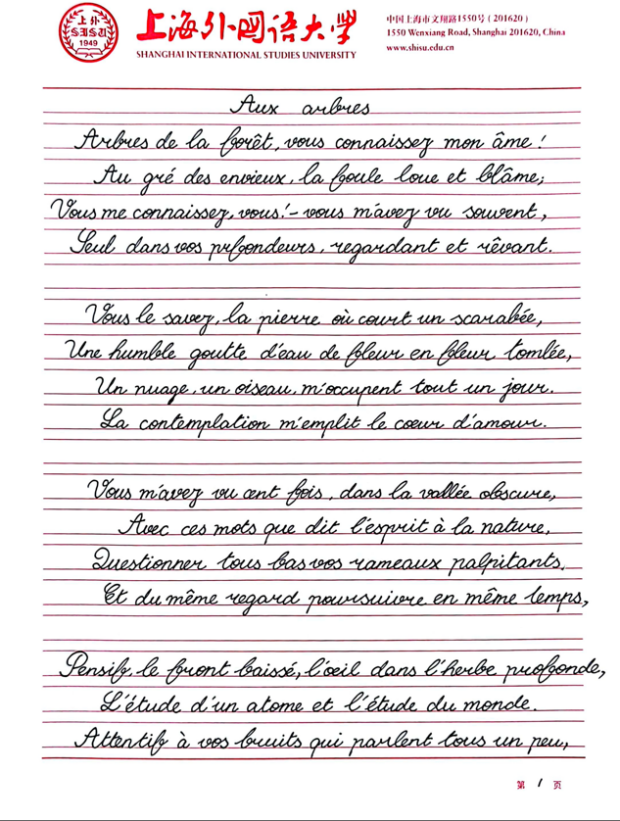 上外
SISU
1949
上海外国语大学
SHANGHAI INTERNATIONAL STUDIES UNIVERSITY
中国上海市文翔路1550号（201620）
1550 Wenxiang Road, Shanghai 201620, China
www.shisu.edu.cn
Aux arbres
Arbres de la forêt, vous connaissez mon âme !
Au gré des envieux, la foule loue et blâme;
Vous me connaissez, vous! – vous m'avez vu souvent,
Seul dans vos profondeurs, regardant et rêvant.
Vous le savez, la pierre où court un scarabée,
Une humble goutte d'eau de fleur en fleur tombée,
Un nuage, un oiseau, m'occupent tout un jour.
La contemplation m'emplit le cœur d'amour.
Vous m'avez vu cent fois, dans la vallée obscure,
Avec ces mots que dit l'esprit à la nature,
Questionner tous bas vos rameaux palpitants,
Et du même regard poursuivre en même temps,
Pensif, le front baissé, l'oeil dans l'herbe profonde,
L'étude d'un atome et l'étude du monde.
Attentif à vos bruits qui parlent tous un peu,
第 1 页